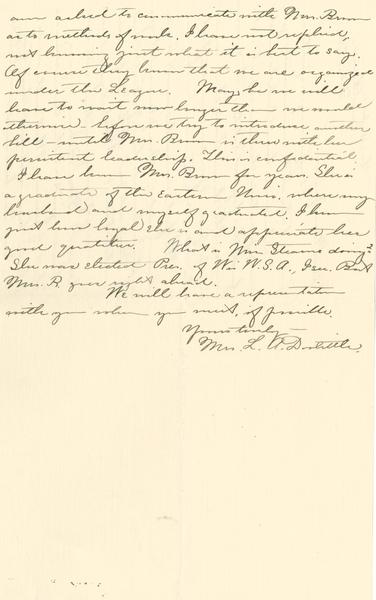 am asked to communicate with Mrs. Brown
as to methods of work. I have not replied,
not knowing just what it is best to say.
Of course they know that we are organized
under the League. Maybe we will
have to wait now longer than we would
otherwise - before we try to introduce another
bill - until Mrs. Brown is thru with her
persistent leadership. This is confidential.
I have known Mrs. Brown for years. She is
a graduate of the Eastern Univ. where my
husband and myself graduated. I know
just how loyal she is and appreciate her
good qualities. What is Mrs. Stearns doing?
She was elected Pres. of Wis. W.S.A., I see. But
Mrs. B. goes right ahead.
We will have a representative
with you when you meet, if possible.
Yours truly
Mrs. L. A. Doolittle.